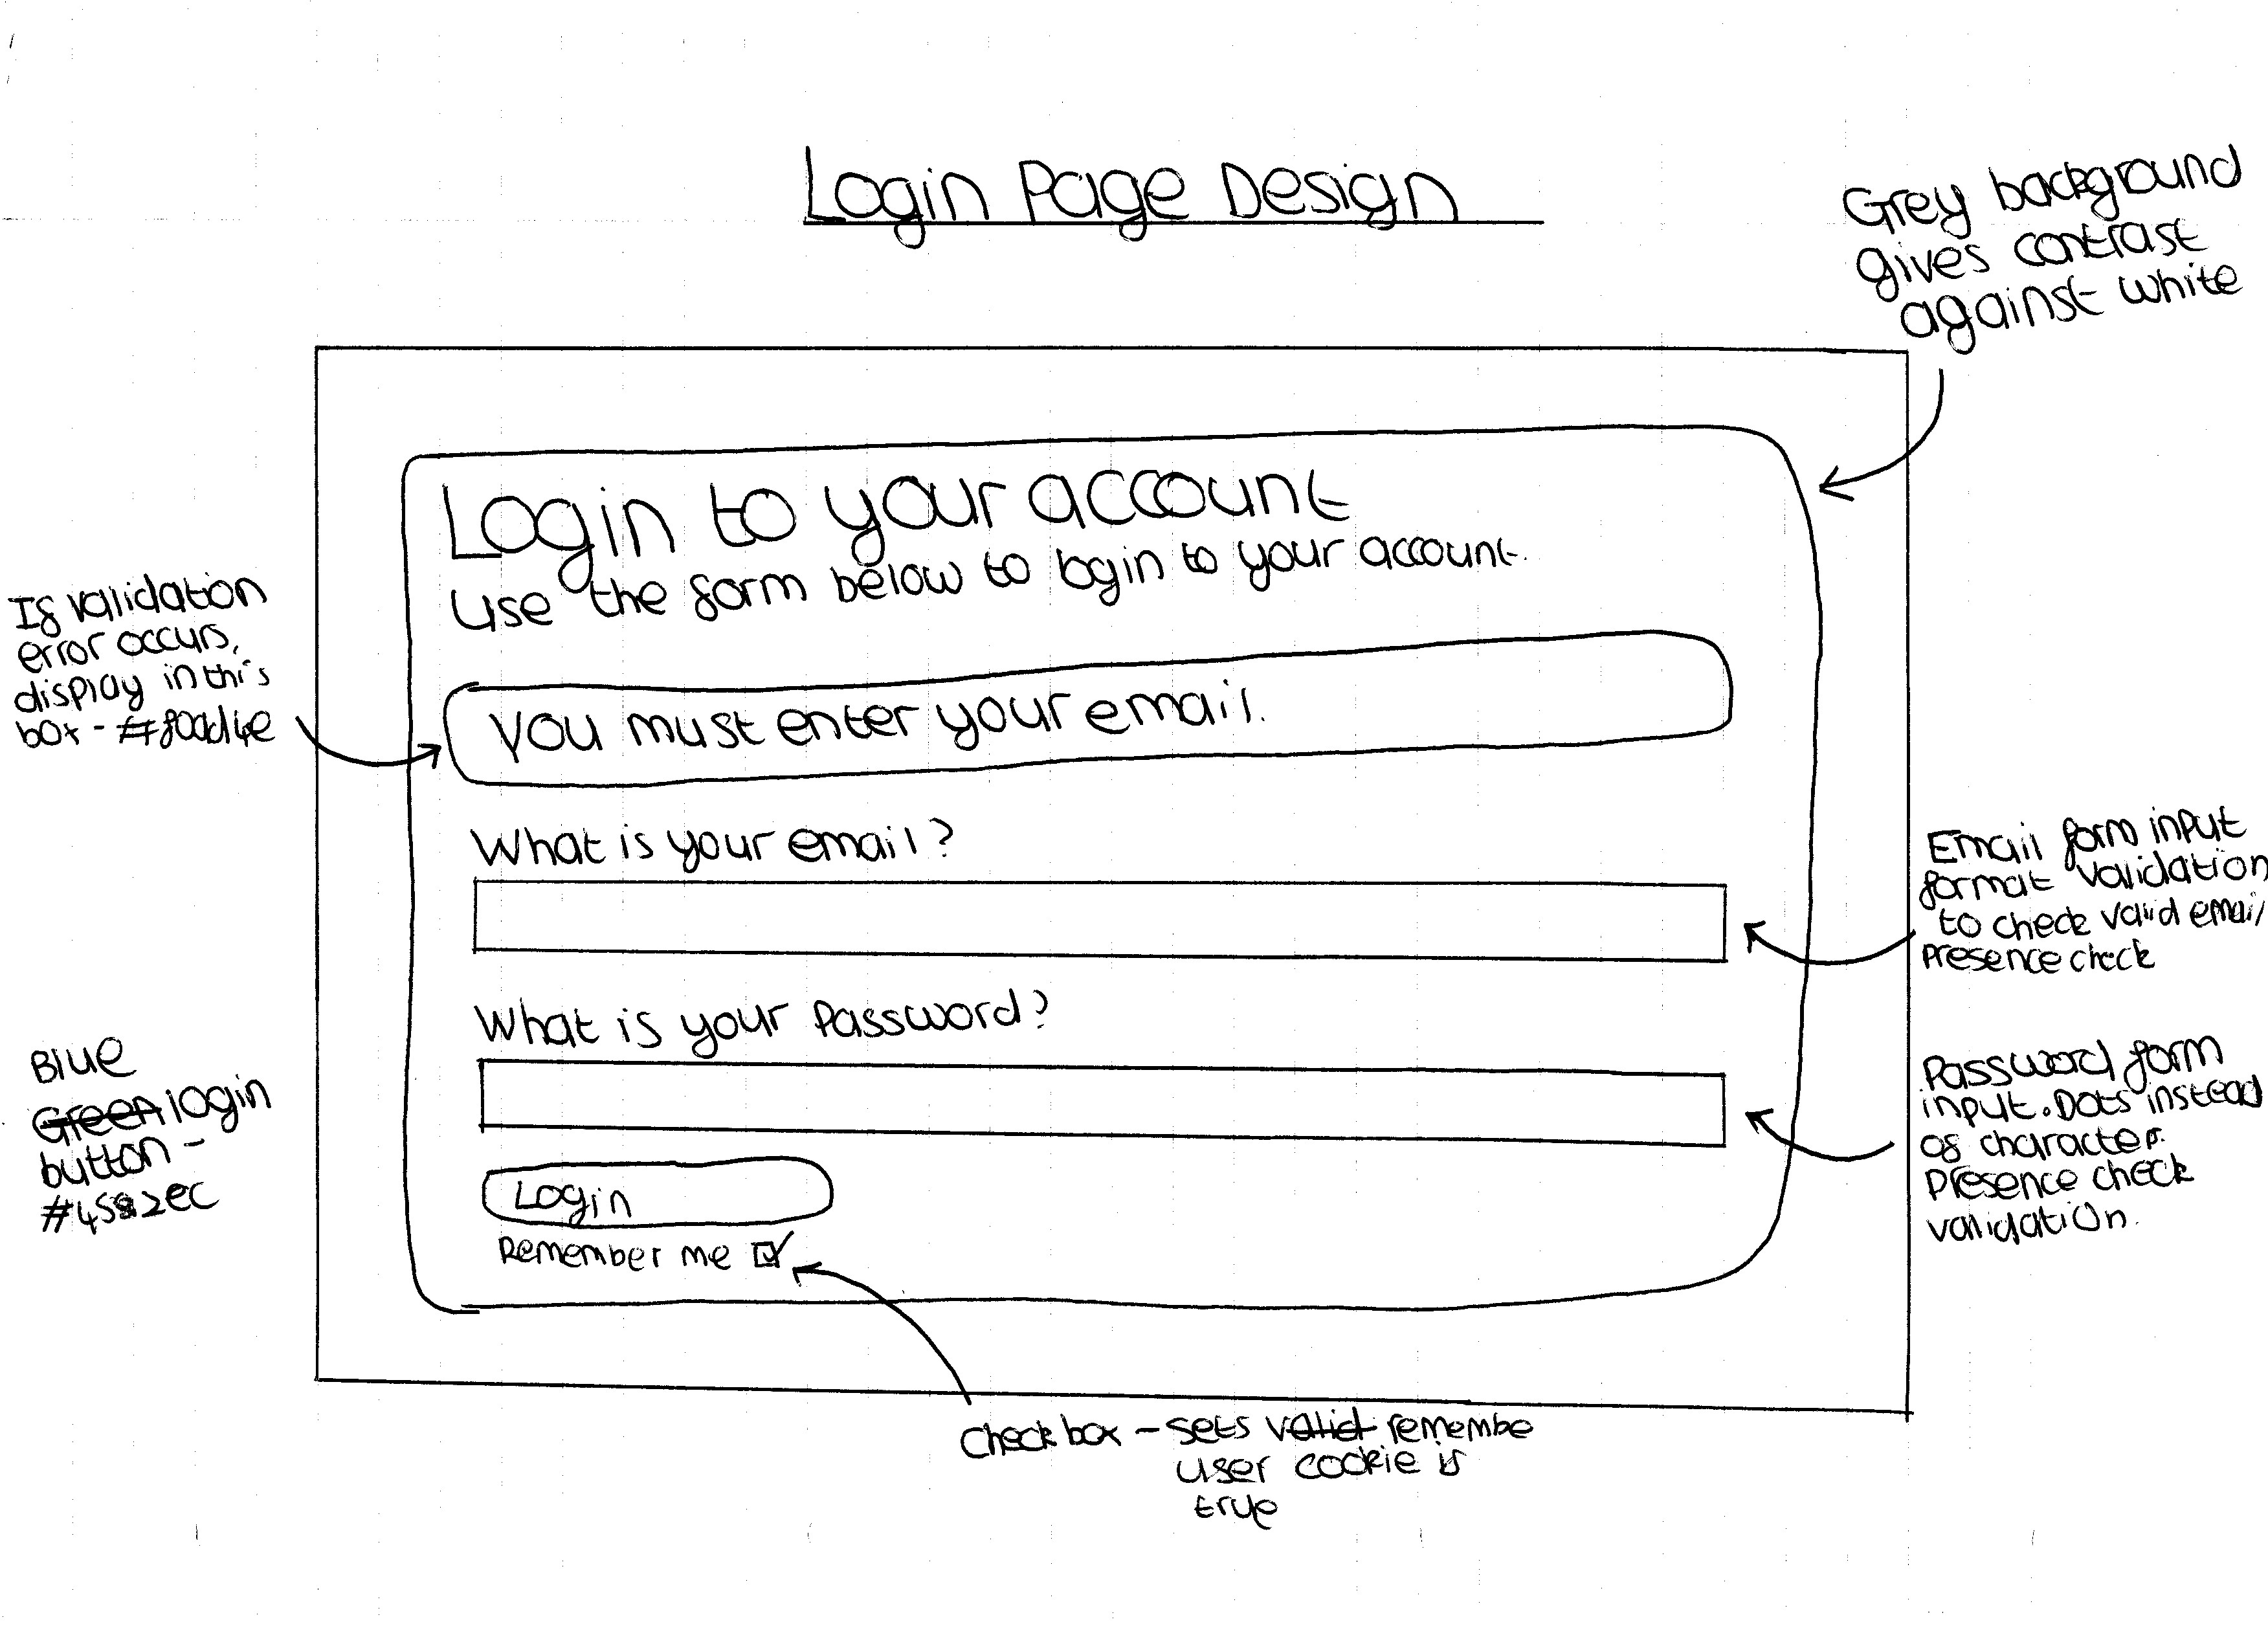 Login Page Design
Grey background
gives contrast
against white
Login to your account
Use the form below to login to your account.
If validation
error occurs,
display in this
box -
You must enter your email.
What is your email?
Email form input
format validation
to check valid email
Presence check
What is your Password?
Password form
input. Dots instead
of character.
Presence check
validation.
Blue
Green login
button -
Login
Remember me
Checkbox - sets valid remembe
user cookie is
true